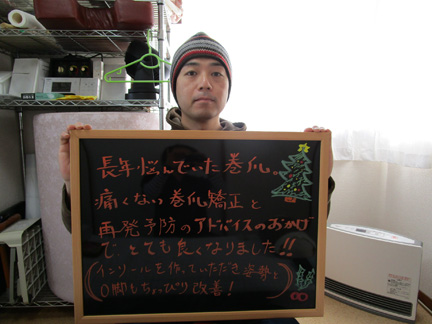 長年悩んでいた巻爪。
痛くない巻爪矯正と
再発予防のアドバイスのおかげ
でとても良くなりました!!
(インソールを作っていただき姿勢と
O脚もちょっぴり改善!)